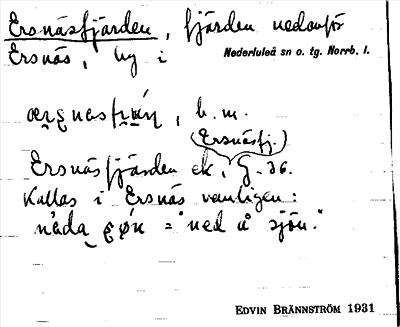 Ersnäsfjärden, fjärden nedanför
Ersnäs, by i Nederluleå sn o. tg. Norrb. l.
, b. m.
(Ersnäsfj.)
Ersnäsfjärden ek, G. 36.
Kallas i Ersnäs vanligen:
= "ned å sjön."
EDVIN BRÄNNSTRÖM 1931